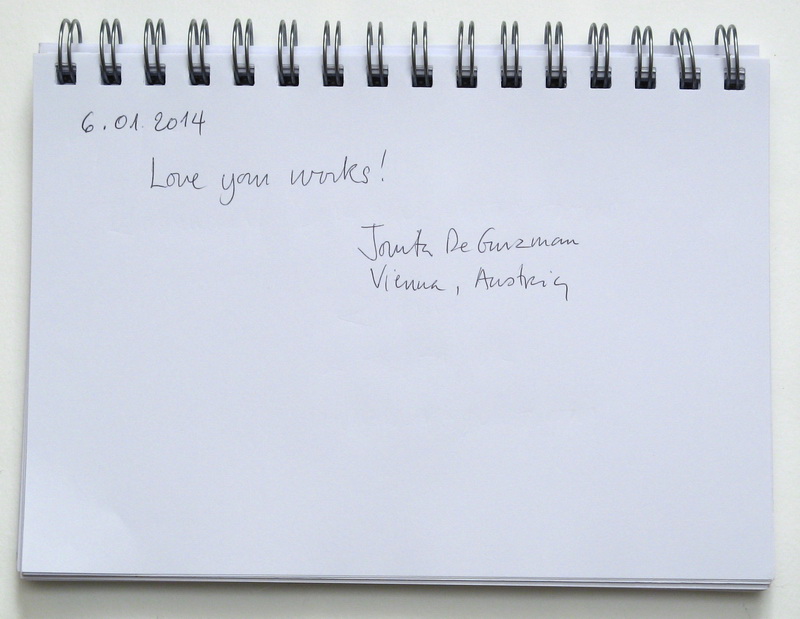 6.01.2014
Love your works!
De Guzman
Vienna, Austria